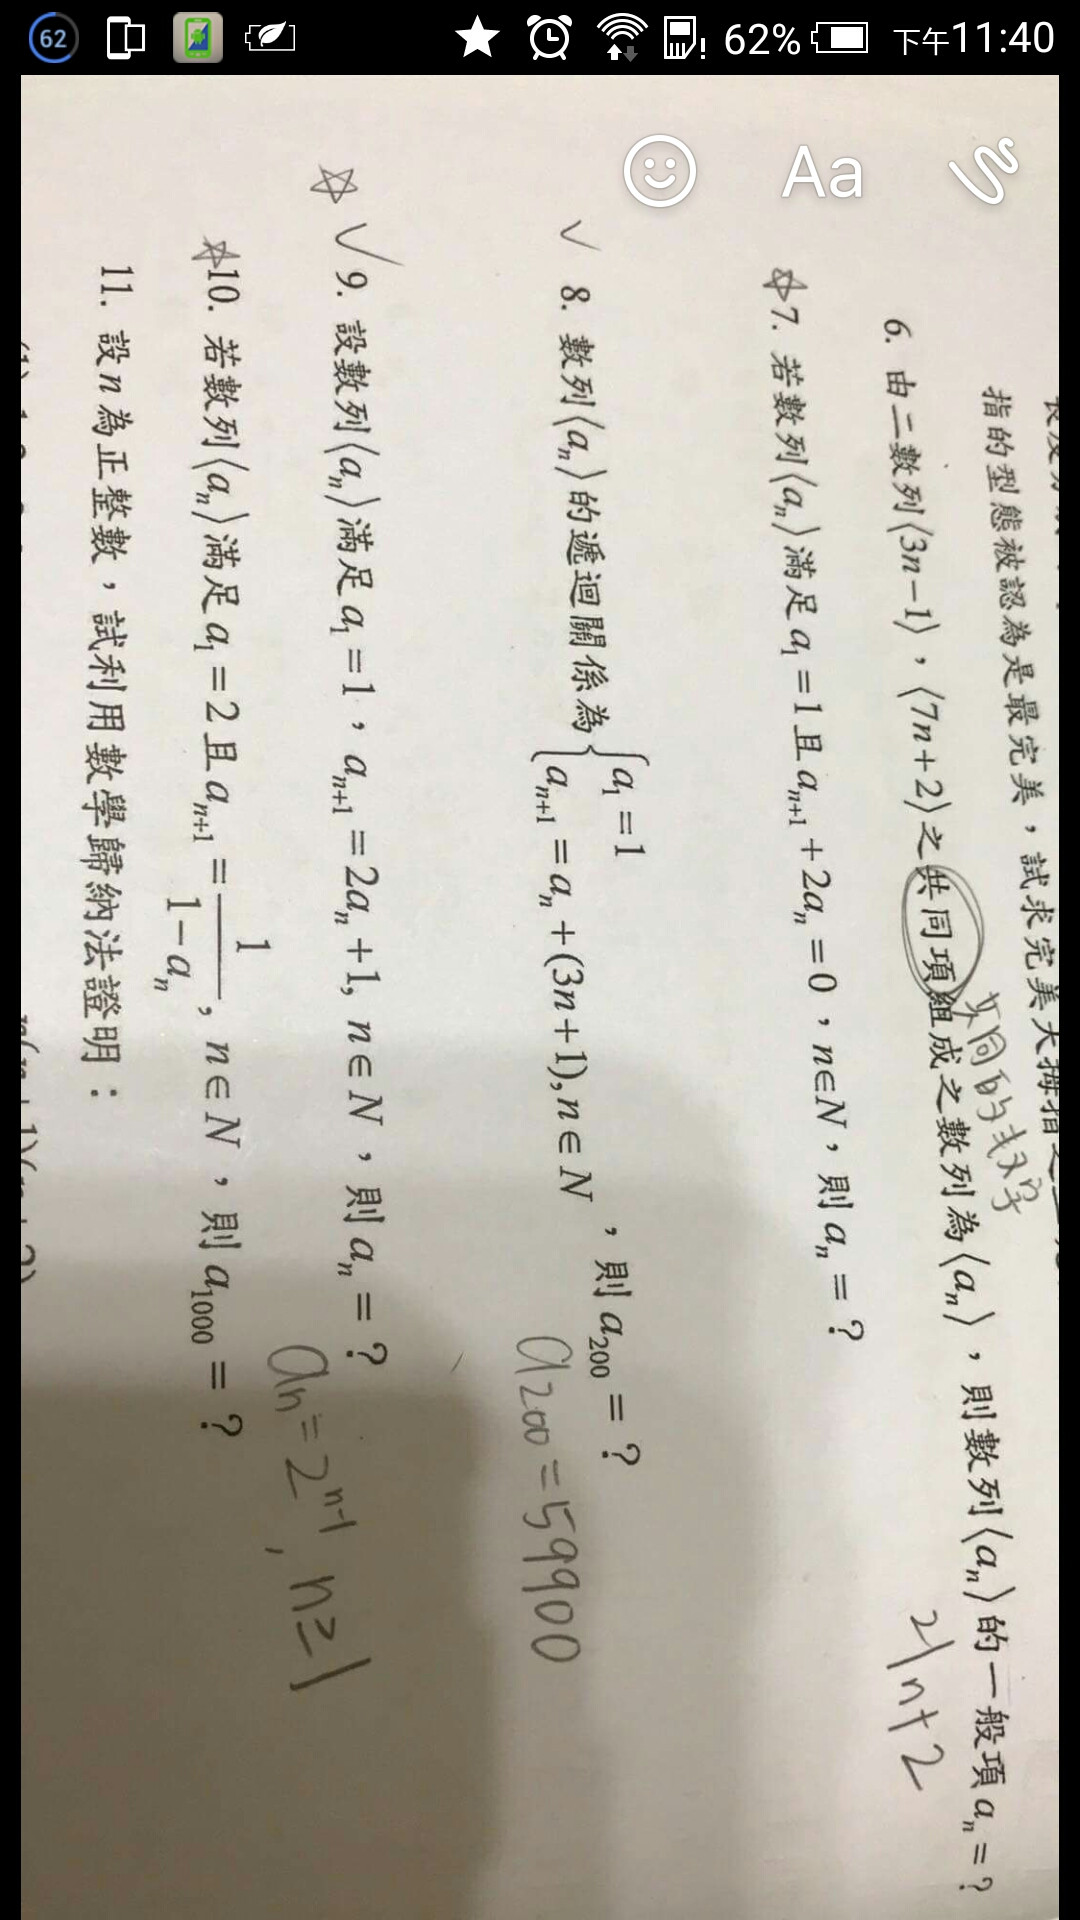 62 62% 下午11:40
Aa
指的型態被認為是最完美，試求完美大拇指之
6. 由二數列⟨3n−1⟩，⟨7n+2⟩之共同項組成之數列為⟨aₙ⟩，則數列⟨aₙ⟩的一般項aₙ=?
共同的數字
21n+2
☆7. 若數列⟨aₙ⟩滿足a₁=1且aₙ₊₁+2aₙ=0，n∈N，則aₙ=?
✓ 8. 數列⟨aₙ⟩的遞迴關係為{a₁=1
aₙ₊₁=aₙ+(3n+1),n∈N，則a₂₀₀=?
a₂₀₀=59900
☆✓ 9. 設數列⟨aₙ⟩滿足a₁=1，aₙ₊₁=2aₙ+1, n∈N，則aₙ=?
aₙ=2ⁿ⁻¹, n≥1
☆10. 若數列⟨aₙ⟩滿足a₁=2且aₙ₊₁=1/(1−aₙ)，n∈N，則a₁₀₀₀=?
11. 設n為正整數，試利用數學歸納法證明：